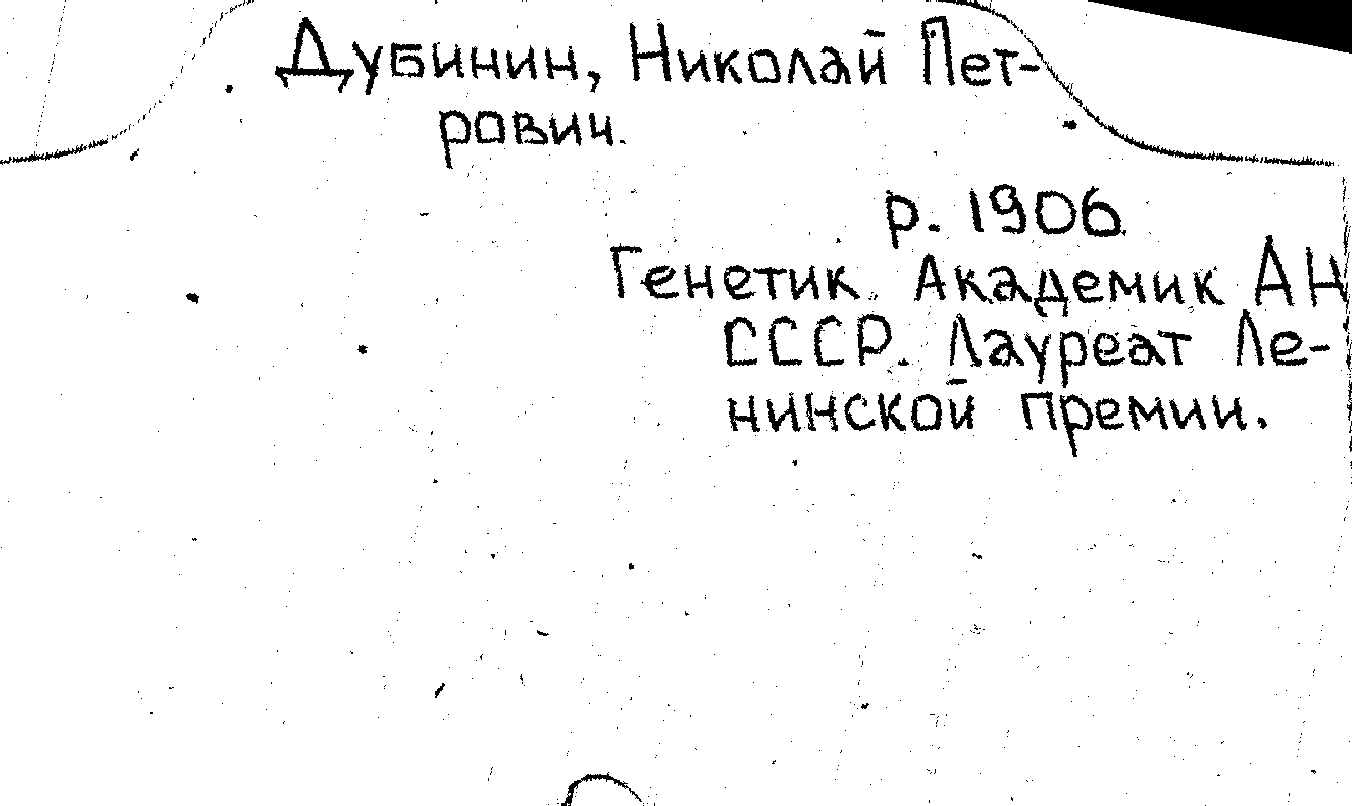 Дубинин, Николай Пет-
рович.
р. 1906
Генетик. Академик АН
СССР. Лауреат Ле-
нинской премии.